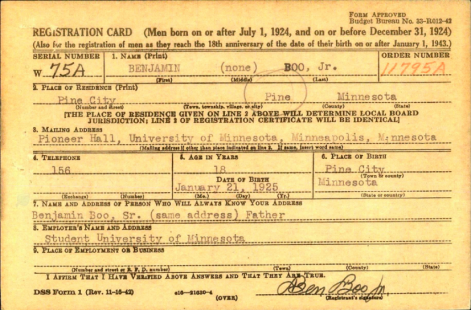 FORM APPROVED
Budget Bureau No. 33-R012-42
REGISTRATION CARD (Men born on or after July 1, 1924, and on or before December 31, 1924)
(Also for the registration of men as they reach the 18th anniversary of the date of their birth on or after January 1, 1943.)
SERIAL NUMBER 1. NAME (Print) ORDER NUMBER
W. 75A BENJAMIN (none) BOO, Jr. 11795A
(First) (Middle) (Last)
2. PLACE OF RESIDENCE (Print)
Pine City Pine Minnesota
(Number and street) (Town, township, village, or city) (County) (State)
[THE PLACE OF RESIDENCE GIVEN ON LINE 2 ABOVE WILL DETERMINE LOCAL BOARD
JURISDICTION; LINE 2 OF REGISTRATION CERTIFICATE WILL BE IDENTICAL]
3. MAILING ADDRESS
Pioneer Hall, University of Minnesota, Minneapolis, Minnesota
[Mailing address if other than place indicated on line 2. If same, insert word same]
4. TELEPHONE 5. AGE IN YEARS 6. PLACE OF BIRTH
156 18 Pine City
DATE OF BIRTH (Town or county)
January 21, 1925 Minnesota
(Exchange) (Number) (Mo.) (Day) (Yr.) (State or country)
7. NAME AND ADDRESS OF PERSON WHO WILL ALWAYS KNOW YOUR ADDRESS
Benjamin Boo, Sr. (same address) Father
8. EMPLOYER'S NAME AND ADDRESS
Student University of Minnesota
9. PLACE OF EMPLOYMENT OR BUSINESS
(Number and street or R. F. D. number) (Town) (County) (State)
I AFFIRM THAT I HAVE VERIFIED ABOVE ANSWERS AND THAT THEY ARE TRUE.
DSS Form 1 (Rev. 11-16-42) (OVER) Ben Boo Jr.
(Registrant's signature)